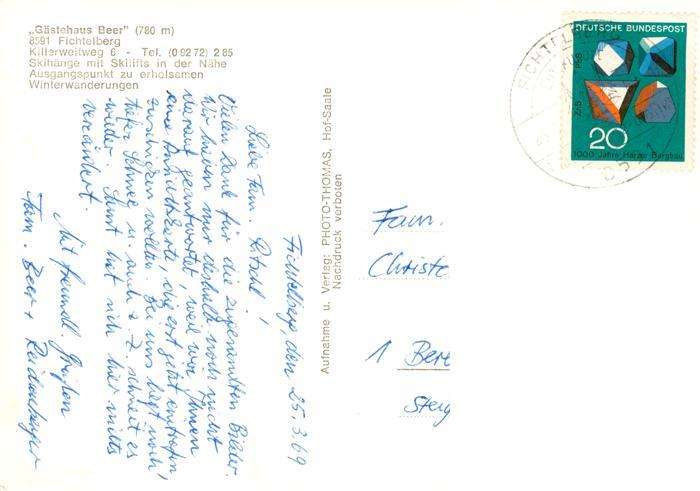 „Gästehaus Beer" (780 m)
8591 Fichtelberg
Killerweitweg 6 - Tel. (0 92 72) 2 85
Skihänge mit Skilifts in der Nähe
Ausgangspunkt zu erholsamen
Winterwanderungen
Fichtelberg, den 25.3.69
Liebe Fam.
Vielen Dank für die zugesandten Bilder.
Wir haben nur deshalb noch nicht
darauf geantwortet, weil wir Ihnen
eine Ansichtskarte, die erst jetzt eintrafen,
zuschicken wollten. Bei uns liegt noch
tiefer Schnee u. auch z. Z. schneit es
wieder. Sonst hat sich hier nichts
verändert.
Mit freundl. Grüßen
Fam. Beer +
Aufnahme u. Verlag: PHOTO-THOMAS, Hof-Saale
Nachdruck verboten
DEUTSCHE BUNDESPOST
PbS
ZnS
20
1000 Jahre Harzer Bergbau
FICHTELBERG
8591
Fam.
Christo
1 Berl
Steg